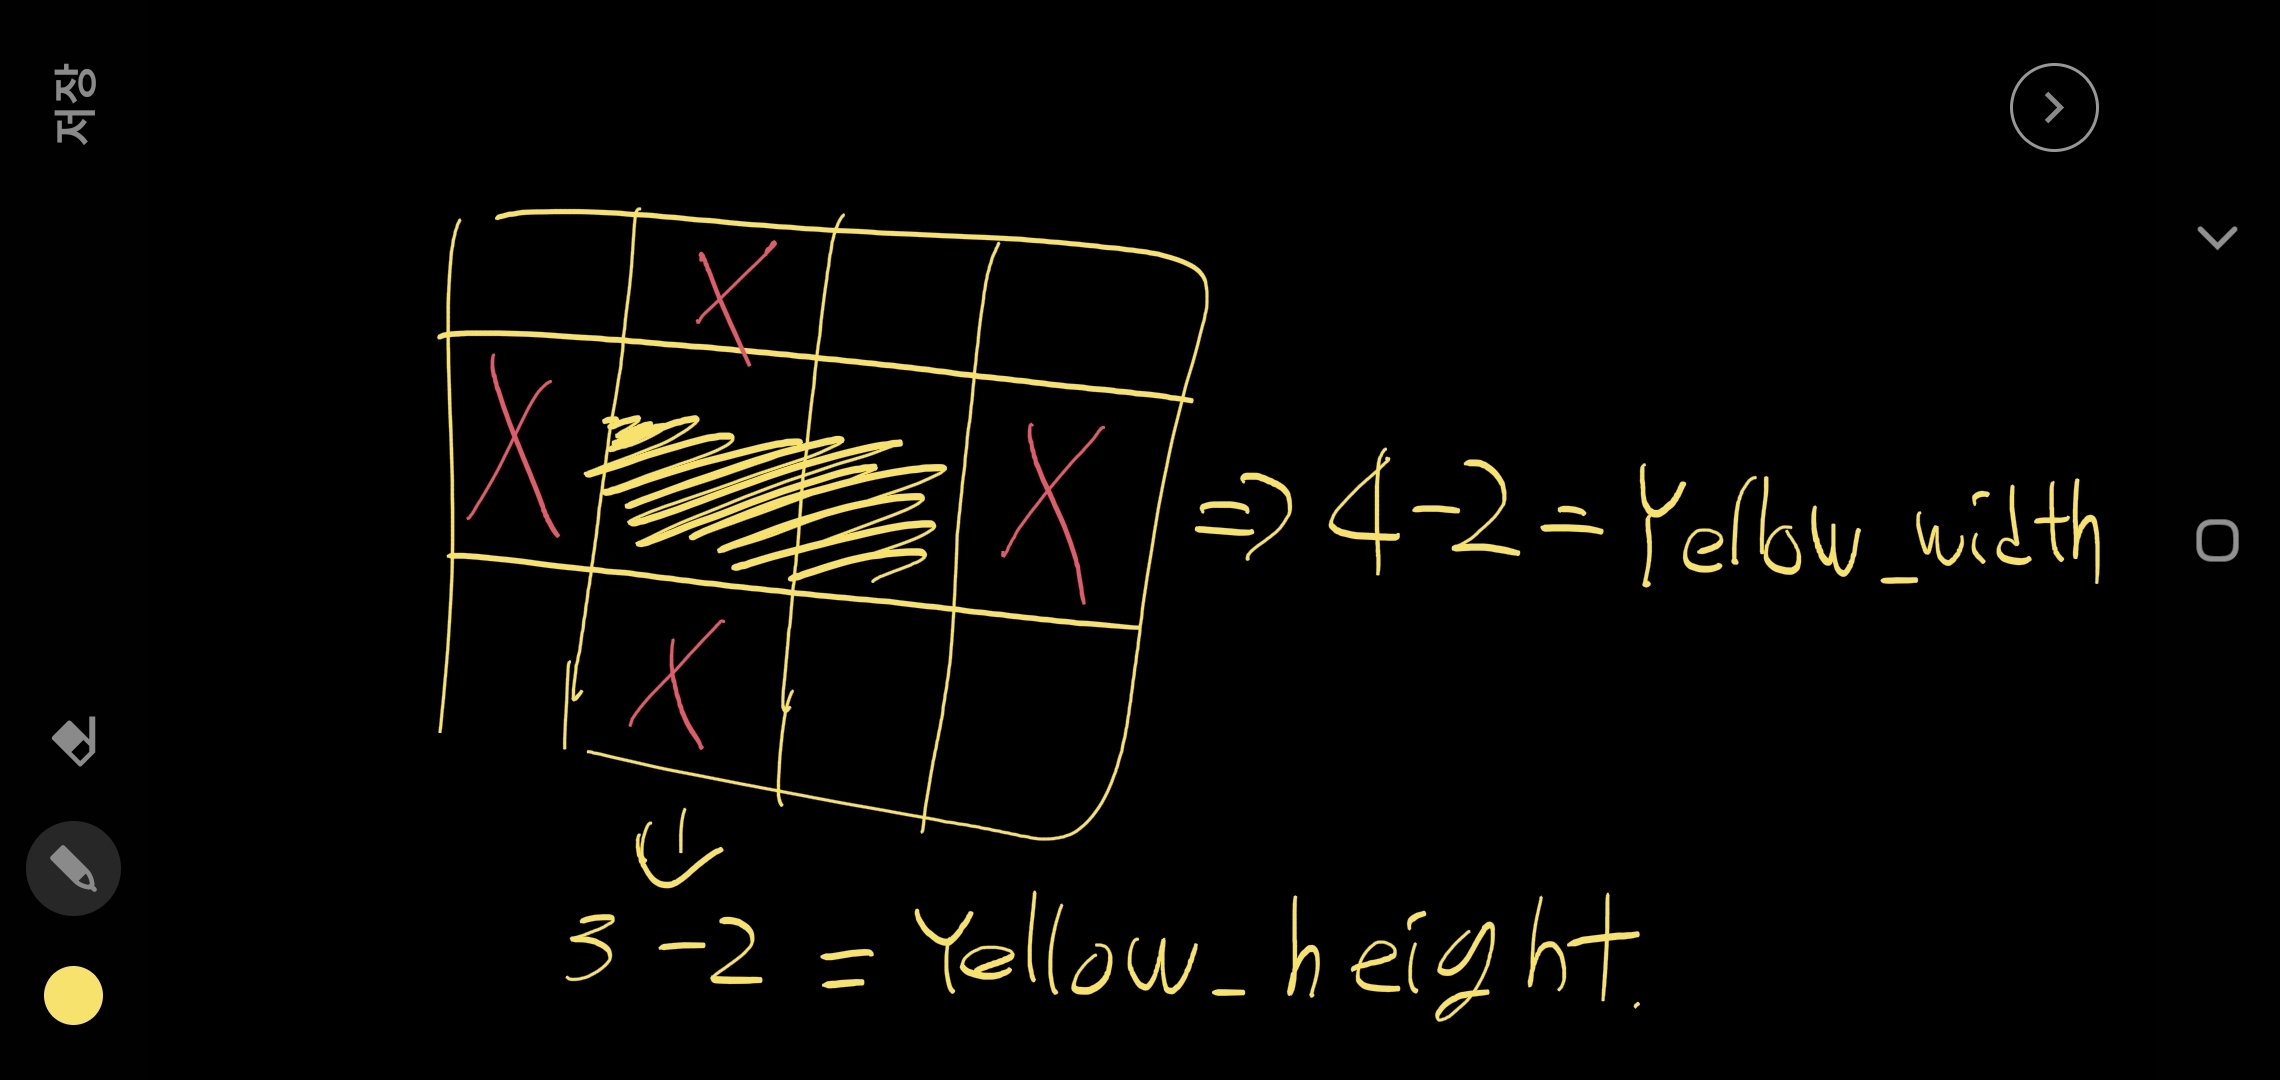 저장
⇒ 4-2 = Yellow_width
3-2 = Yellow_height.